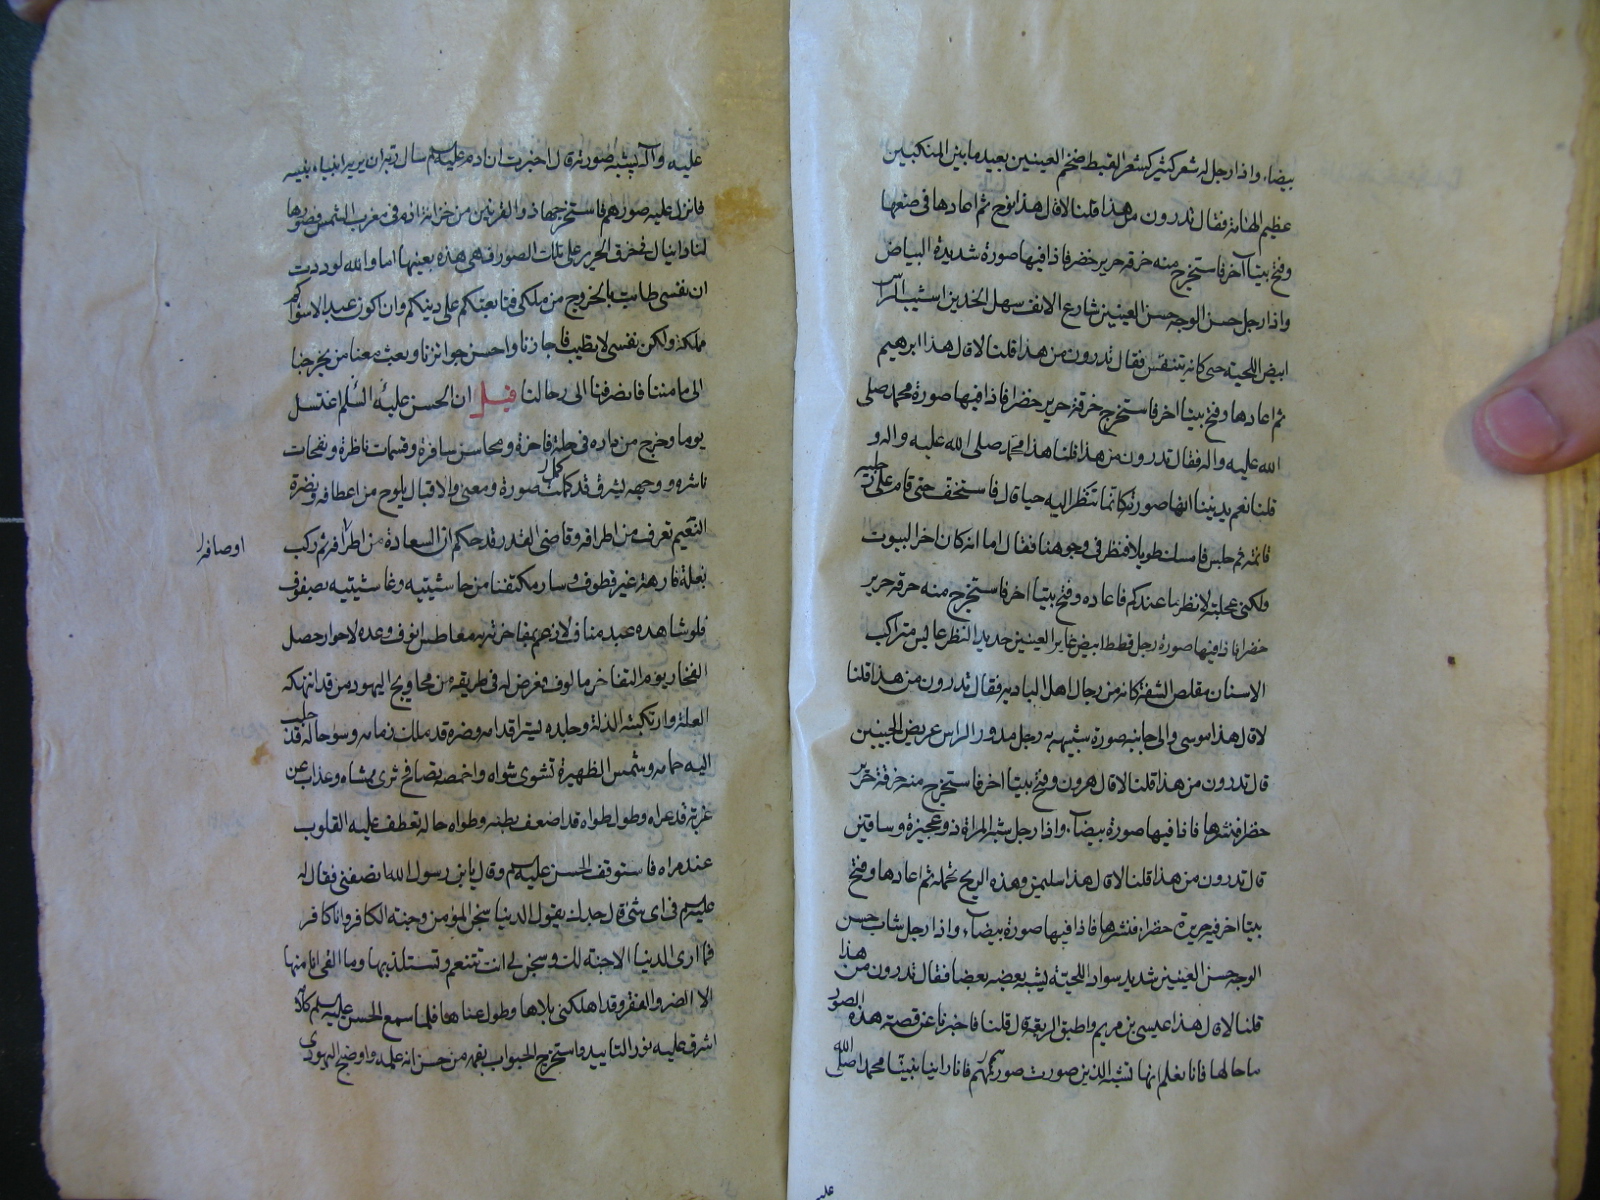 بيضاء واذا رجل له شعر كثير كشعر القبط ضخم العينين بعيد ما بين المنكبين
عظيم الهامة فقال تدرون من هذا قلنا لا قال هذا نوح ثم اعادها في
وفتح بيتا آخر فاستخرج منه خرقة حرير خضر فاذا فيها صورة شديدة البياض
واذا رجل حسن الوجه حسن العينين شارع الانف سهل الخدين اشيب الراس
ابيض اللحية حتى كانه يتنفس فقال تدرون من هذا قلنا لا قال هذا ابرهيم
ثم اعادها وفتح بيتا اخر فاستخرج خرقة حرير خضرا فاذا فيها صورة محمد صلى
الله عليه واله فقال تدرون من هذا قلنا هذا محمد صلى الله عليه واله و
قلنا نعم بديننا انها صورته كانما ننظر اليه حيا قال فاستخف حتى قام على رجليه
قائمة ثم جلس فامسك طويلا فنظر في وجوهنا فقال اما انه كان اخر البيوت
ولكني عجلته لانظر ما عندكم فاعاده وفتح بيتا اخر فاستخرج منه خرقة حرير
خضرا فاذا فيها صورة رجل قطط ابيض غاير العينين حديد النظر عابس متراكب
الاسنان مقلص الشفة كانه من رجال اهل الباديه فقال تدرون من هذا قلنا
لا قال هذا موسى والى جانبه صورة شبيهه به رجل مدور الراس عريض الجبين
قال تدرون من هذا قلنا لا قال هرون وفتح بيتا اخر فاستخرج منه خرقة حرير
خضر فنشرها فاذا فيها صورة بيضاء واذا رجل شبه المراة ذو عجيزة وساقين
قال تدرون من هذا قلنا لا قال هذا سليمن وهذه الريح تحمله ثم اعادها وفتح
بيتا اخر فيه حريرة خضراء فنشرها فاذا فيها صورة بيضاء واذا رجل شاب حسن
الوجه حسن العينين شديد سواد اللحية يشبه بعضه بعضا فقال تدرون من هذا
قلنا لا قال هذا عيسى بن مريم واطبق الربعة قال قلنا فاخبرنا عن قصة هذه الصور
ما حالها فانا نعلم انها تشبه الذين صورت صورهم فانا راينا نبينا محمدا صلى الله
عليه
عليه وآله يشبه صورته قال اخبرت ان ادم عليه السلم سال ربه ان يريه انبياء بنيه
فانزل عليه صورهم فاستخرجها ذو القرنين من خزانة ادم في مغرب الشمس فصورها
لنا دانيال في خرق الحرير على تلك الصور فهي هذه بعينها اما والله لوددت
ان نفسي طابت بالخروج من ملكي فتابعتكم على دينكم وان اكون عبدا لاسواكم
ملكة ولكن نفسي لا تطيب فاجازنا واحسن جوائزنا وبعث معنا من يخرجنا
الى مامننا فانصرفنا الى رحالنا قيل ان الحسن عليه السلم اغتسل
يوما وخرج من داره في حلة فاخرة ومحاسن سافرة وقسمات ناظرة ونفحات
ناشره ووجهه يشرق قد كمل صورة ومعنى والاقبال يلوح من اعطافه ونضرة
النعيم تعرف من اطرافه وقاضي القدر قد حكم ان السعادة من اطرافه ثم ركب
اوصافه
بغلة فارهة غير قطوف وسار مكتنفا من حاشيتيه وغاشيتيه بصفوف
فلو شاهده عبد مناف لارغم بمفاخرته معاطس انوف وعده لاحراز خصل
الفخار يوم التفاخر مالوف فعرض له في طريقه من محاويج اليهود من قد انهكه
العلة وارتكبته الذلة وجلده يستر اقدامه وضره قد ملك زمامه وسو حاله قد حبب
اليه حمامه وشمس الظهيرة تشوي شواه واخمصه تصافح ثرى ممشاه وعذاب عن
قد عراه وطول طواه قد اضعف بطنه وطواه حاله تعطف عليه القلوب
عند مراه فاستوقف الحسن عليه السلم وقال يا بن رسول الله انصفني فقال له
عليه السلم في اي شئ قال جدك يقول الدنيا سجن المؤمن وجنة الكافر وانا كافر
فما ارى الدنيا الا جنة لك وسجن لي انت تتنعم وتستلذ بها وما الفي انا منها
الا الضر والفقر وقد اهلكني بلاها وطول عناها فلما سمع الحسن عليه السلم كلامه
اشرق عليه نور التاييد واستخرج الجواب بفهمه من خزانة علمه واوضح اليهودي